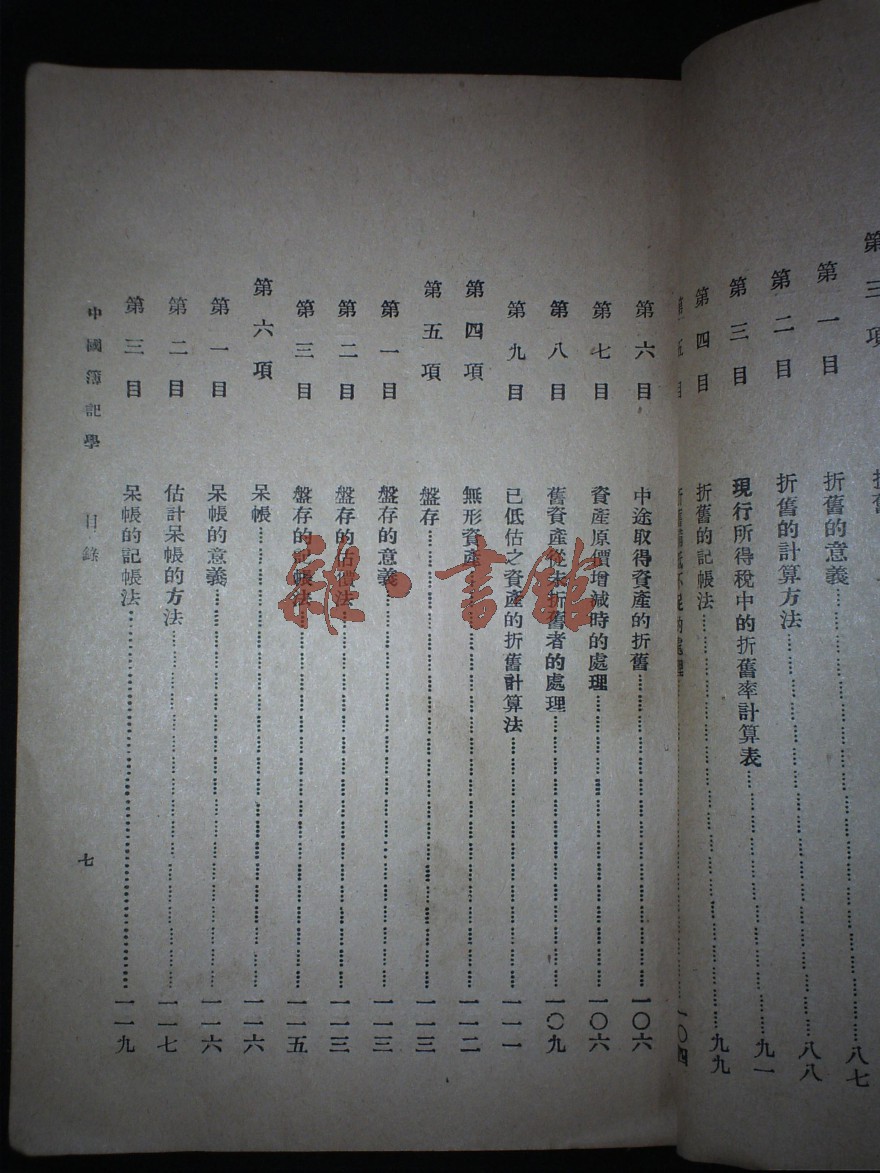 第三項 折舊
第一目 折舊的意義……八七
第二目 折舊的計算方法……八八
第三目 現行所得稅中的折舊率計算表……九一
第四目 折舊的記帳法……九九
第五目 折舊 不足的處理……一〇四
第六目 中途取得資產的折舊……一〇六
第七目 資產原價增減時的處理……一〇六
第八目 舊資產從未折舊者的處理……一〇九
第九目 已低估之資產的折舊計算法……一一一
第四項 無形資產……一一二
第五項 盤存……一一三
第一目 盤存的意義……一一三
第二目 盤存的估價法……一一三
第三目 盤存的記帳法……一一五
第六項 呆帳……一一六
第一目 呆帳的意義……一一六
第二目 估計呆帳的方法……一一七
第三目 呆帳的記帳法……一一九
中國簿記學 目錄 七
雜·書館